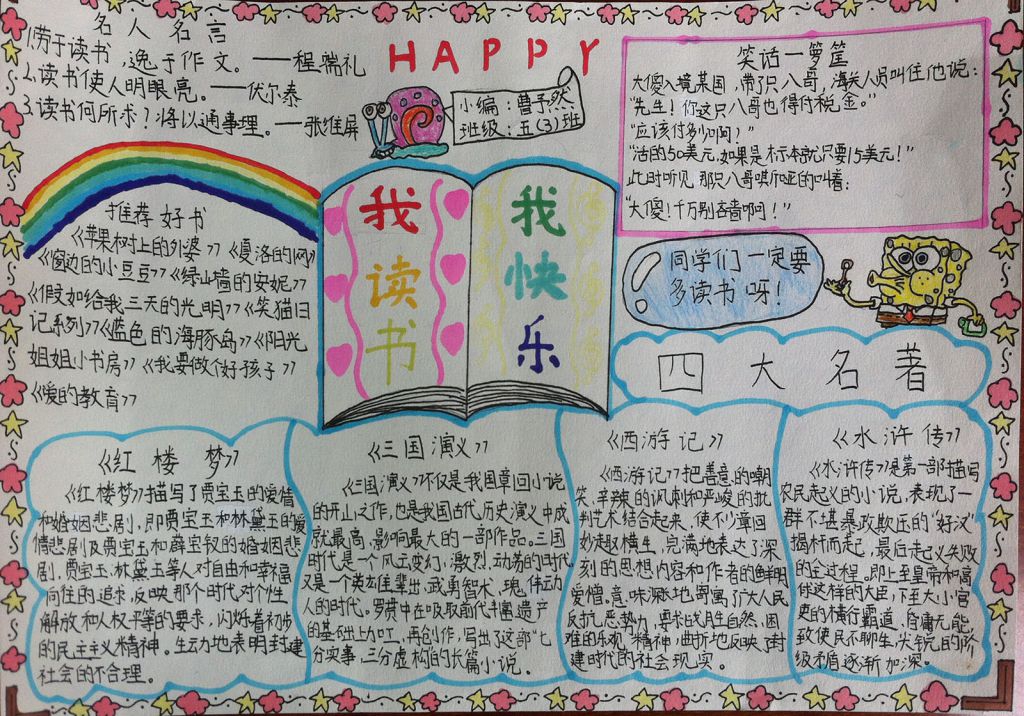 名人名言
1.劳于读书,逸于作文。——程端礼
2.读书使人明眼亮。——伏尔泰
3.读书何所求?将以通事理。——张维屏
HAPPY
小编:曹予然
班级:五(3)班
笑话一箩筐
大傻入境某国,带了只八哥,海关人员叫住他说:
"先生!你这只八哥也得付税金。"
"应该付多少啊?"
"活的50美元,如果是标本就只要15美元!"
此时听见那只八哥嘶哑的叫着:
"大傻!千万别吝啬啊!"
推荐好书
《苹果树上的外婆》《夏洛的网》
《窗边的小豆豆》《绿山墙的安妮》
《假如给我三天的光明》《笑猫日
记系列》《蓝色的海豚岛》《阳光
姐姐小书房》《我要做个好孩子》
《爱的教育》
我读书
我快乐
同学们一定要
多读书呀!
四大名著
《红楼梦》
《红楼梦》描写了贾宝玉的爱情
和婚姻悲剧,即贾宝玉和林黛玉的爱
情悲剧及贾宝玉和薛宝钗的婚姻悲
剧,贾宝玉、林黛玉等人对自由和幸福
向往的追求,反映那个时代对个性
解放和人权平等的要求,闪烁着初步
的民主主义精神。生动地表明封建
社会的不合理。
《三国演义》
《三国演义》不仅是我国章回小说
的开山之作,也是我国古代历史演义中成
就最高,影响最大的一部作品。三国
时代是一个风云变幻,激烈,动荡的时代
又是一个英雄辈出,武勇智术,瑰伟动
人的时代。罗贯中在吸取前代丰富遗产
的基础上加工,再创作,写出了这部"七
分实事,三分虚构的长篇小说。
《西游记》
《西游记》把善意的嘲
笑、辛辣的讽刺和严峻的批
判艺术结合起来,使不少章回
妙趣横生,完满地表达了深
刻的思想内容和作者的鲜明
爱憎,意味深长地,寄寓了广大人民
反抗恶势力,要求战胜自然,困
难的乐观"精神,曲折地反映了封
建时代的社会现实。
《水浒传》
《水浒传》是第一部描写
农民起义的小说,表现了一
群不堪暴政欺压的"好汉"
揭杆而起,最后起义失败
的全过程。即上至皇帝和高
俅这样的大臣,下至大小官
吏的横行霸道,昏庸无能,
致使民不聊生,尖锐的阶
级矛盾逐渐加深。